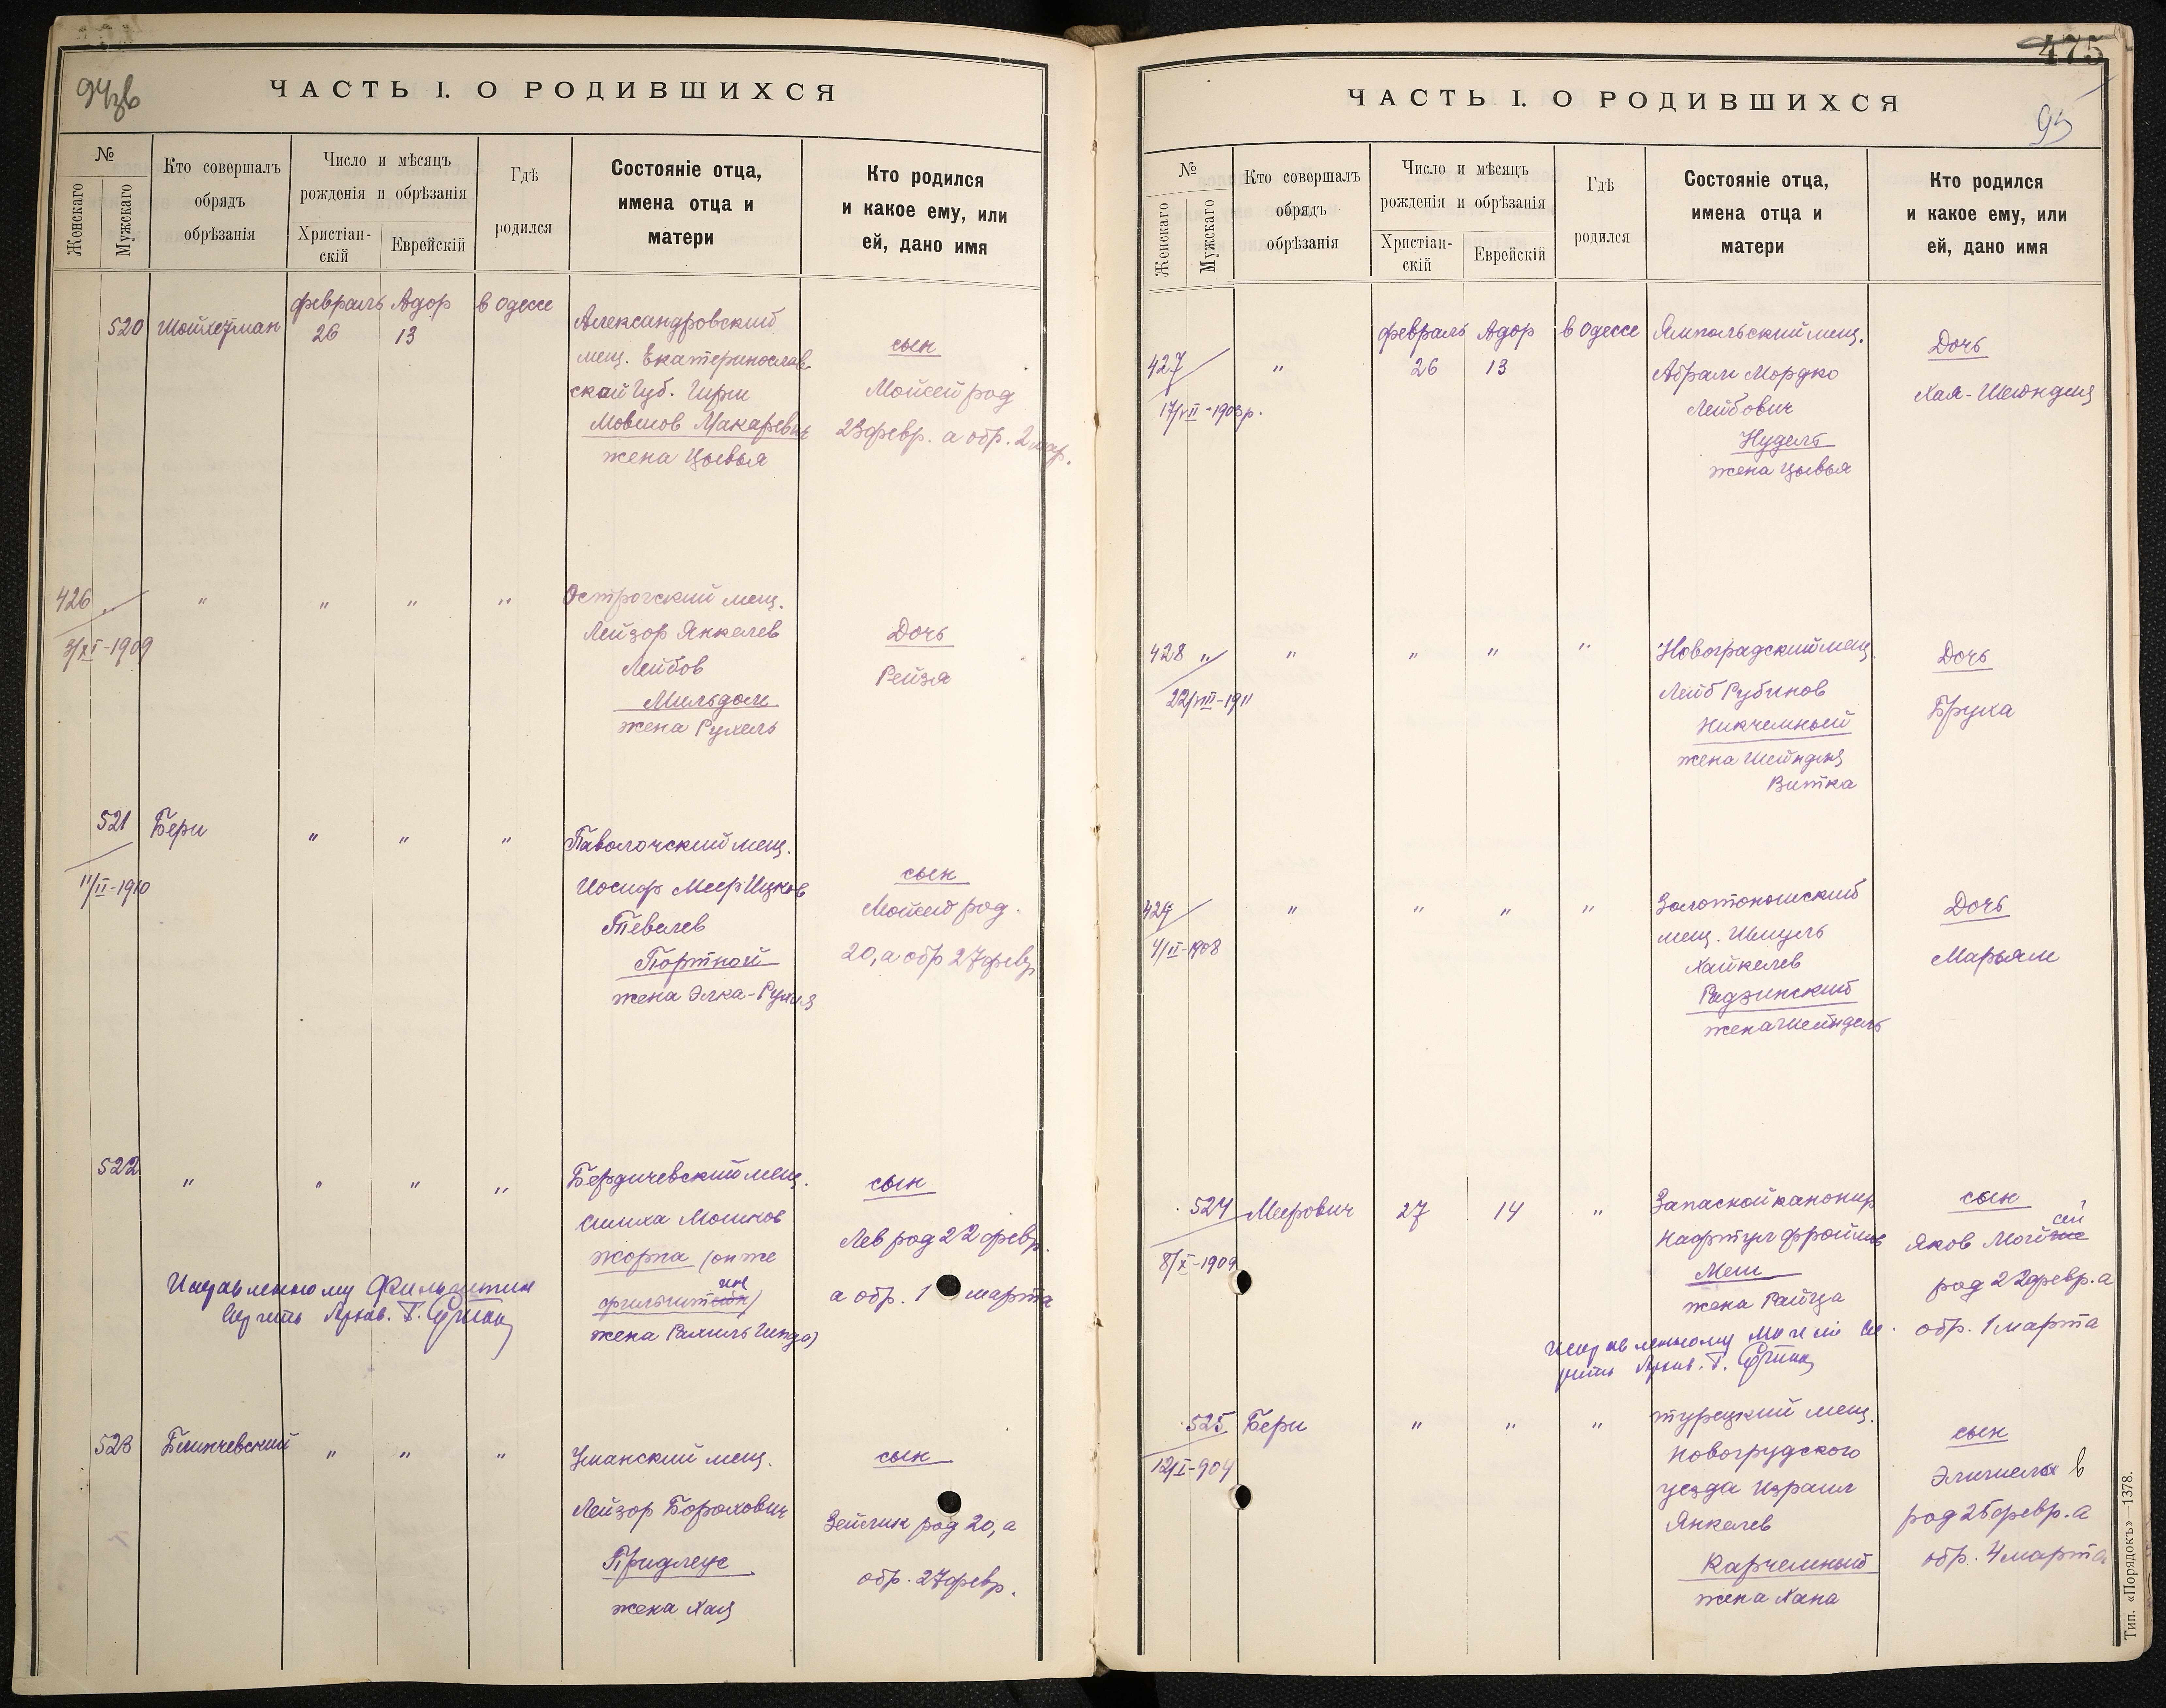 94зв
ЧАСТЬ I. О РОДИВШИХСЯ
№
Женскаго
Мужскаго
Кто совершалъ
обрядъ
обрѣзанія
Число и мѣсяцъ
рожденія и обрѣзанія
Христіан-
скій
Еврейскій
Гдѣ
родился
Состояніе отца,
имена отца и
матери
Кто родился
и какое ему, или
ей, дано имя
520 Шойхетман
февраль Адор в Одессе
26 13
Александровский
мещ. Екатеринослав
ской Губ. Гирш
Мовшов Макаревич
жена Цывья
сын
Мойсей род
23 февр. а обр. 2 мар.
426 " " " " "
3/XI-1909
Острогский мещ.
Лейзор Янкелев
Лейбов
Мильдом
жена Рухель
Дочь
Рейзя
521 Бери " " "
11/II-1910
Паволочский мещ.
Иосиф Меер Ицков
Тевелев
Портной
жена Элка-Рухля
сын
Мойсей род.
20, а обр 27 февр
522 " " " "
Бердичевский мещ.
Симха Мошков
Жорна (он же
фильштейн)
жена Рахиль Гинда)
сын
Лев род 22 февр.
а обр. 1 марта
Исправленному
верить Архив. Г.
523 Блинчевский " " "
Уманский мещ.
Лейзор Борохович
Придлеус
жена Хая
сын
Зейлик род 20, а
обр. 27 февр.
475
95
ЧАСТЬ I. О РОДИВШИХСЯ
№
Женскаго
Мужскаго
Кто совершалъ
обрядъ
обрѣзанія
Число и мѣсяцъ
рожденія и обрѣзанія
Христіан-
скій
Еврейскій
Гдѣ
родился
Состояніе отца,
имена отца и
матери
Кто родился
и какое ему, или
ей, дано имя
427 "
17/VII-1903 р.
февраль Адор в Одессе
26 13
Ямпольский мещ.
Абрам Мордко
Лейбович
Нудель
жена Цывья
Дочь
Хая-Шейндля
428 " " " " "
22/VIII-1911
Новоградский мещ.
Лейб Рубинов
Никчемный
жена Шейндля
Витка
Дочь
Бруха
429 " " " "
4/II-1908
Золотоношский
мещ. Шмуль
Хайкелев
Радзинский
жена Шейндель
Дочь
Марьям
524 Меерович 27 14 "
8/X-1909
Запасной канонир
Нафтул Фроймов
Меш
жена Райца
сын
сей
Яков Мой
род 22 февр. а
обр. 1 марта
Исправленному Моисей ве-
рить Архив. Г.
525 Бери " " "
12/I-904
Турецкий мещ.
Новогрудского
уезда Израил
Янкелев
Карчемный
жена Хана
сын
Элимелех
род 25 февр. а
обр. 4 марта
Тип. «Порядокъ»—1378.